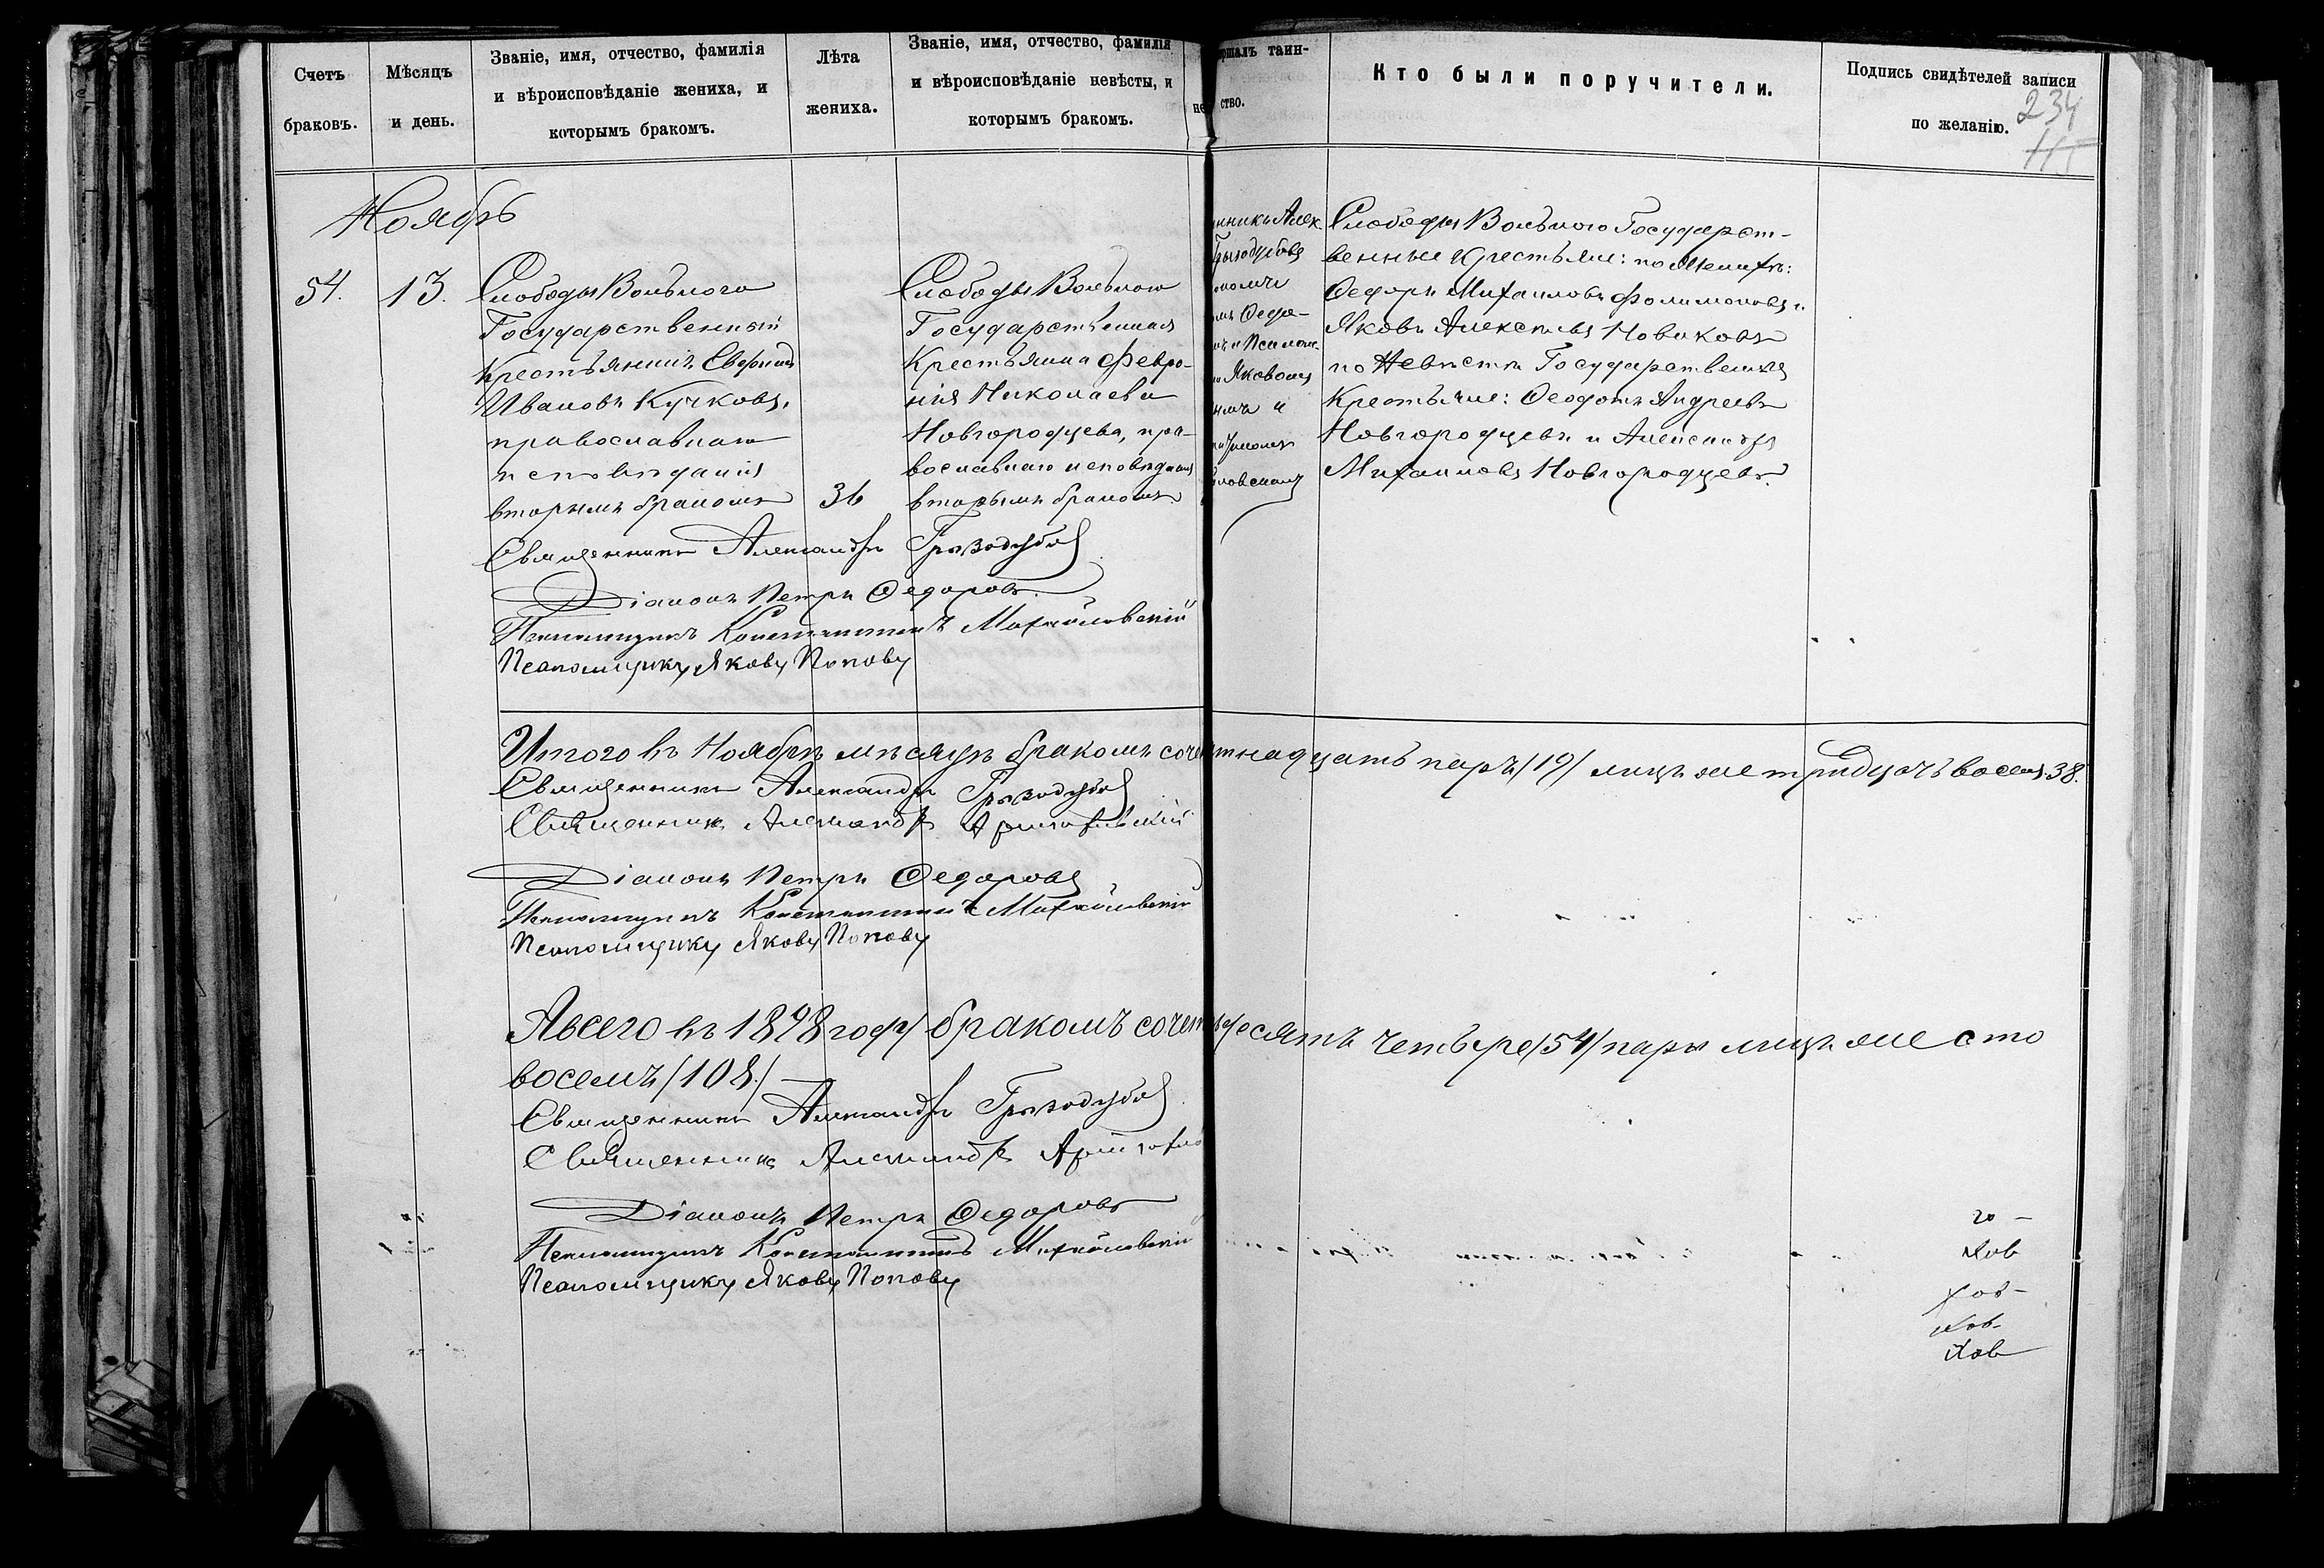 Счетъ
браковъ.
Мѣсяцъ
и день.
Званіе, имя, отчество, фамилія
и вѣроисповѣданіе жениха, и
которымъ бракомъ.
Лѣта
жениха.
Званіе, имя, отчество, фамилія
и вѣроисповѣданіе невѣсты, и
которымъ бракомъ.
не
ршалъ таин-
ство.
Кто были поручители.
Подпись свидѣтелей записи
по желанію.
234
Ноябрь
54.
13.
Слободы Вольнаго
Государственный
Крестьянинъ
Ивановъ Кучковъ,
православнаго
исповѣданія
вторымъ бракомъ
36
Слободы Вольнаго
Государственная
Крестьянка Февро-
нія Николаева
Новгородцева, пра-
вославнаго исповѣданія
вторымъ бракомъ.
нникъ Алек.
Грызодубовъ
омъ Федо-
Яковомъ
и
ловскимъ
Слободы Вольнаго Государст-
венные Крестьяне: по Женихѣ:
Федоръ Михаиловъ Филимоновъ и
Яковъ Алексѣевъ Новиковъ
по Невѣстѣ Государственные
Крестьяне: Феодотъ Андреевъ
Новгородцевъ и Александръ
Михаиловъ Новгородцевъ.
Священникъ Александръ Грызодубовъ
Діаконъ Петръ Федоровъ
Псаломщикъ Константинъ Михайловскій
Псаломщикъ Яковъ Поповъ
Итого въ Ноябрѣ мѣсяцѣ бракомъ соче
тнадцать паръ /19/ лицъ же тридцать восемь 38.
Священникъ Александръ Грызодубовъ
Священникъ Александръ
Діаконъ Петръ Федоровъ
Псаломщикъ Константинъ Михайловскій
Псаломщикъ Яковъ Поповъ
А всего въ 1898 году бракомъ сочет
десятъ четыре /54/ пары лицъ же сто
восемь /108/
Священникъ Александръ Грызодубовъ
Священникъ Александръ
Діаконъ Петръ Федоровъ
Псаломщикъ Константинъ Михайловскій
Псаломщикъ Яковъ Поповъ